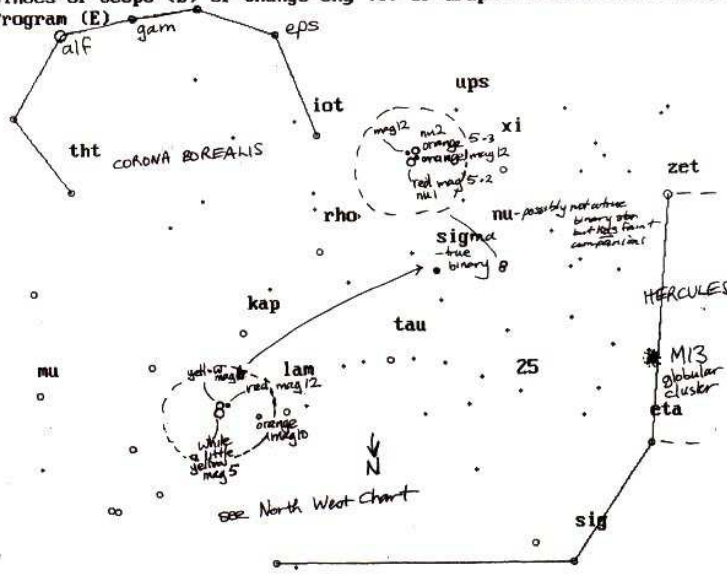 rogram (E)
alf
gam
eps
ups
iot
xi
tht
CORONA BOREALIS
zet
mag 12
nu2
orange 5.3
orange mag 12
red mag 5.2
nu1
rho
nu - possibly not a true
binary stn
but has faint
companions
sigma
- true
binary
kap
HERCULES
tau
mu
lam
25
M13
globular
cluster
yellow
mag
red mag 12
orange
mag 10
eta
white
a little
yellow
mag 5
N
see North West Chart
sig